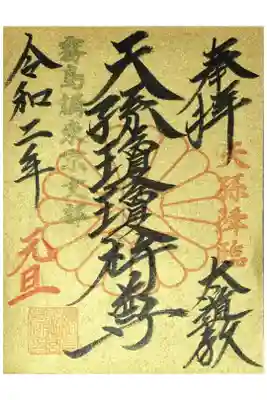 奉拝
天孫降臨
天孫瓊瓊杵尊
霧島
令和二年
元旦